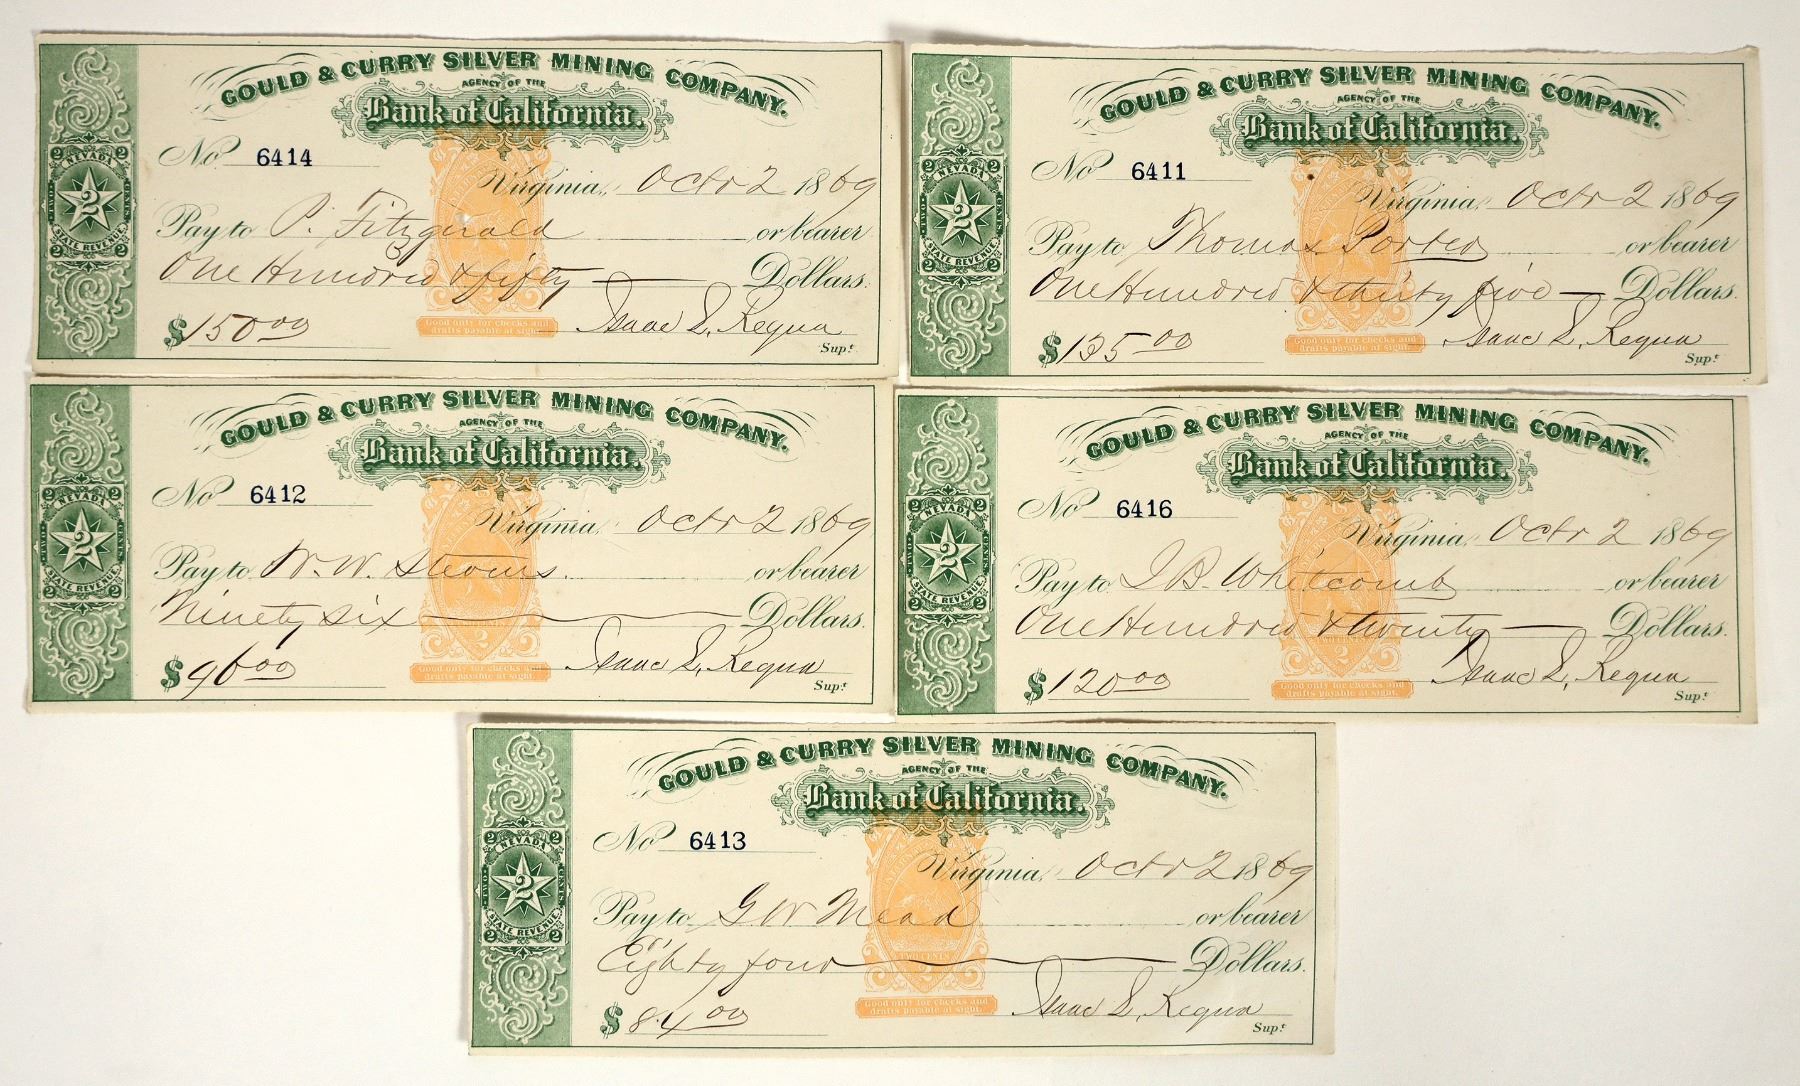 GOULD & CURRY SILVER MINING COMPANY.
AGENCY OF THE
Bank of California.
No 6414
Virginia, Octr 2 1869
Pay to P. Fitzgerald or bearer
One Hundred & fifty Dollars.
$150.00
Isaac L. Requa
Supt
Good only for checks and
drafts payable at sight.
2 NEVADA 2
TWO CENTS
2
STATE REVENUE
2 2
GOULD & CURRY SILVER MINING COMPANY.
AGENCY OF THE
Bank of California.
No 6411
Virginia, Octr 2 1869
Pay to Thomas Porter or bearer
One Hundred & thirty five Dollars.
$135.00
Isaac L. Requa
Supt
Good only for checks and
drafts payable at sight.
2 NEVADA 2
TWO CENTS
2
STATE REVENUE
2 2
GOULD & CURRY SILVER MINING COMPANY.
AGENCY OF THE
Bank of California.
No 6412
Virginia, Octr 2 1869
Pay to W. W. Stevens. or bearer
Ninety six Dollars.
$96.00
Isaac L. Requa
Supt
Good only for checks and
drafts payable at sight.
2 NEVADA 2
TWO CENTS
2
STATE REVENUE
2 2
GOULD & CURRY SILVER MINING COMPANY.
AGENCY OF THE
Bank of California.
No 6416
Virginia, Octr 2 1869
Pay to J B. Whitcomb or bearer
One Hundred & twenty Dollars.
$120.00
Isaac L. Requa
Supt
Good only for checks and
drafts payable at sight.
2 NEVADA 2
TWO CENTS
2
STATE REVENUE
2 2
GOULD & CURRY SILVER MINING COMPANY.
AGENCY OF THE
Bank of California.
No 6413
Virginia, Octr 2 1869
Pay to G W Mead or bearer
Eighty four Dollars.
$84.00
Isaac L. Requa
Supt
TWO CENTS
2
Good only for checks and
drafts payable at sight.
2 NEVADA 2
TWO CENTS
2
STATE REVENUE
2 2